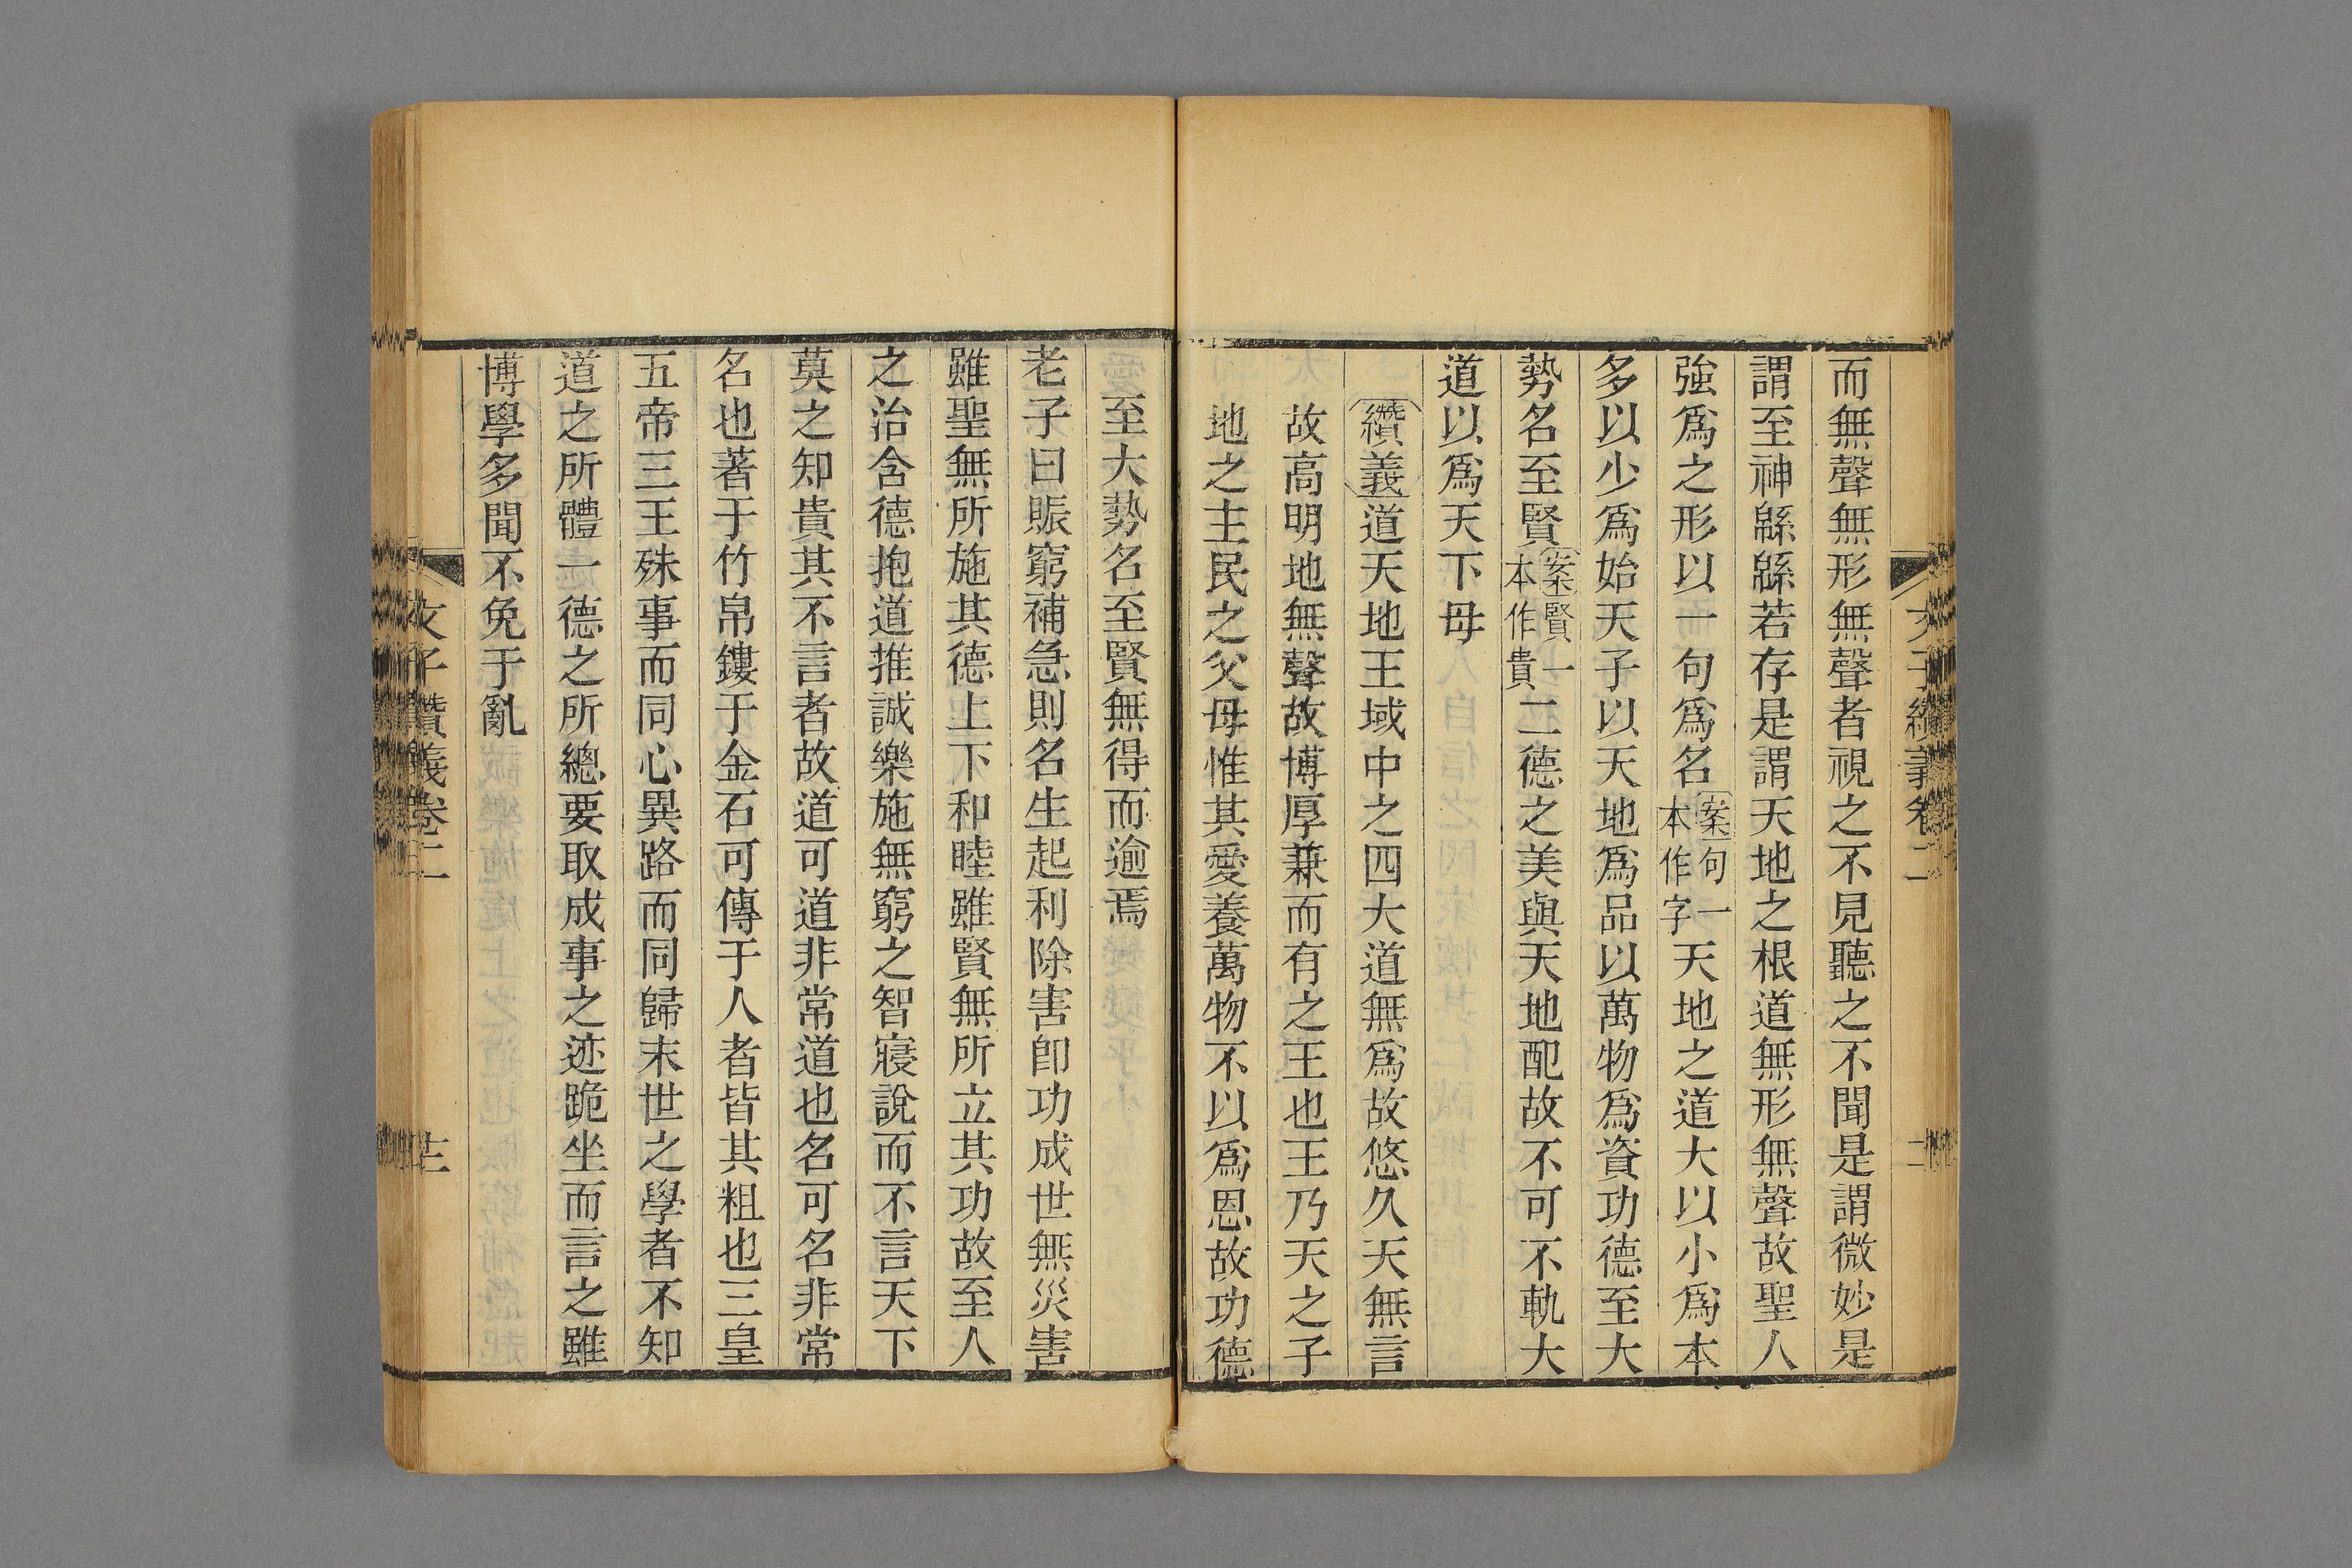 而無聲無形無聲者視之不見聽之不聞是謂微妙是
謂至神緜緜若存是謂天地之根道無形無聲故聖人
強爲之形以一句爲名案句一本作字天地之道大以小爲本
多以少爲始天子以天地爲品以萬物爲資功德至大
勢名至賢案賢一本作貴二德之美與天地配故不可不軌大
道以爲天下母
纘義道天地王域中之四大道無爲故悠久天無言
故高明地無聲故博厚兼而有之王也王乃天之子
地之主民之父母惟其愛養萬物不以爲恩故功德
至大勢名至賢無得而逾焉
老子曰賑窮補急則名生起利除害卽功成世無災害
雖聖無所施其德上下和睦雖賢無所立其功故至人
之治含德抱道推誠樂施無窮之智寢說而不言天下
莫之知貴其不言者故道可道非常道也名可名非常
名也著于竹帛鏤于金石可傳于人者皆其粗也三皇
五帝三王殊事而同心異路而同歸末世之學者不知
道之所體一德之所總要取成事之迹跪坐而言之雖
博學多聞不免于亂
文子纘義卷二